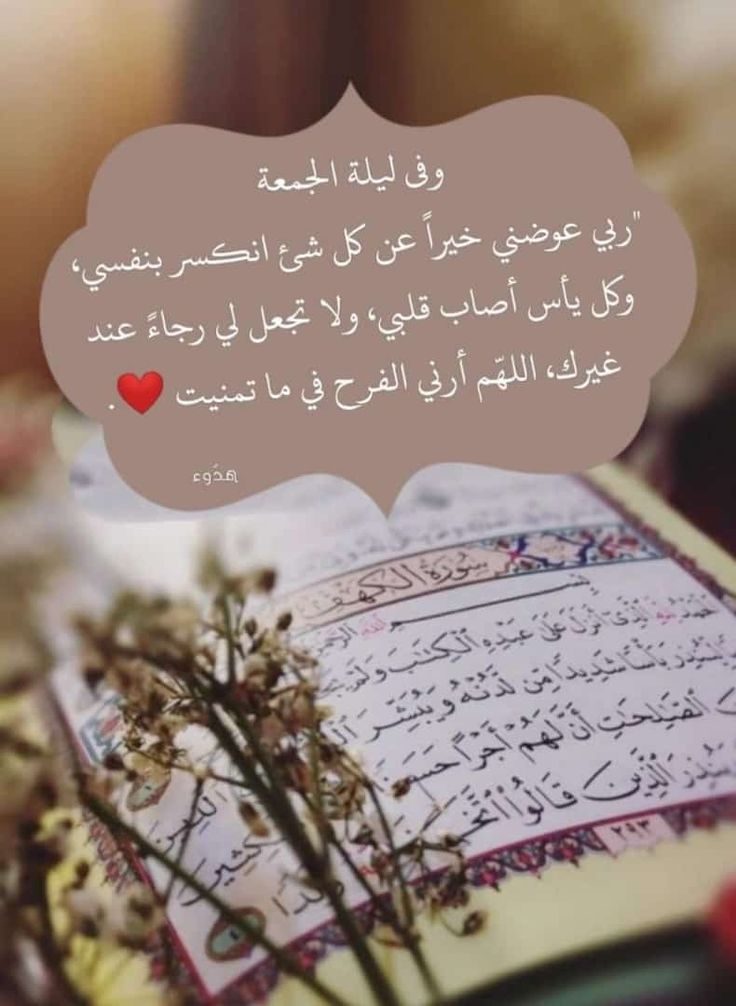 وفى ليلة الجمعة
"ربي عوضني خيراً عن كل شئ انكسر بنفسي،
وكل يأس أصاب قلبي، ولا تجعل لي رجاءً عند
غيرك، اللهّم أرني الفرح في ما تمنيت ❤️.
هدُوء
سُورَةُ الكَهْفِ
بِسْمِ اللهِ الرَّحْمَٰنِ
الَّذِىٓ أَنزَلَ عَلَىٰ عَبْدِهِ ٱلْكِتَٰبَ وَلَمْ
بَأْسًا شَدِيدًا مِّن لَّدُنْهُ وَيُبَشِّرَ
ٱلصَّٰلِحَٰتِ أَنَّ لَهُمْ أَجْرًا
ٱلَّذِينَ قَالُوا۟
٢٩٣